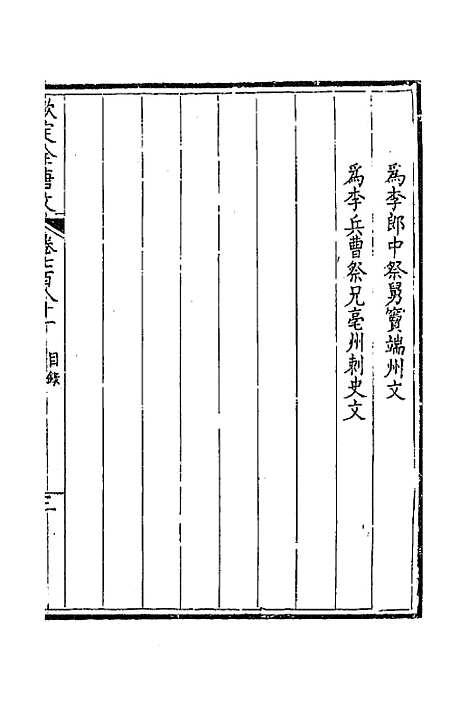 爲李郎中祭舅竇端州文
爲李兵曹祭兄亳州刺史文
欽定全唐文
卷七百八十一
目錄
三